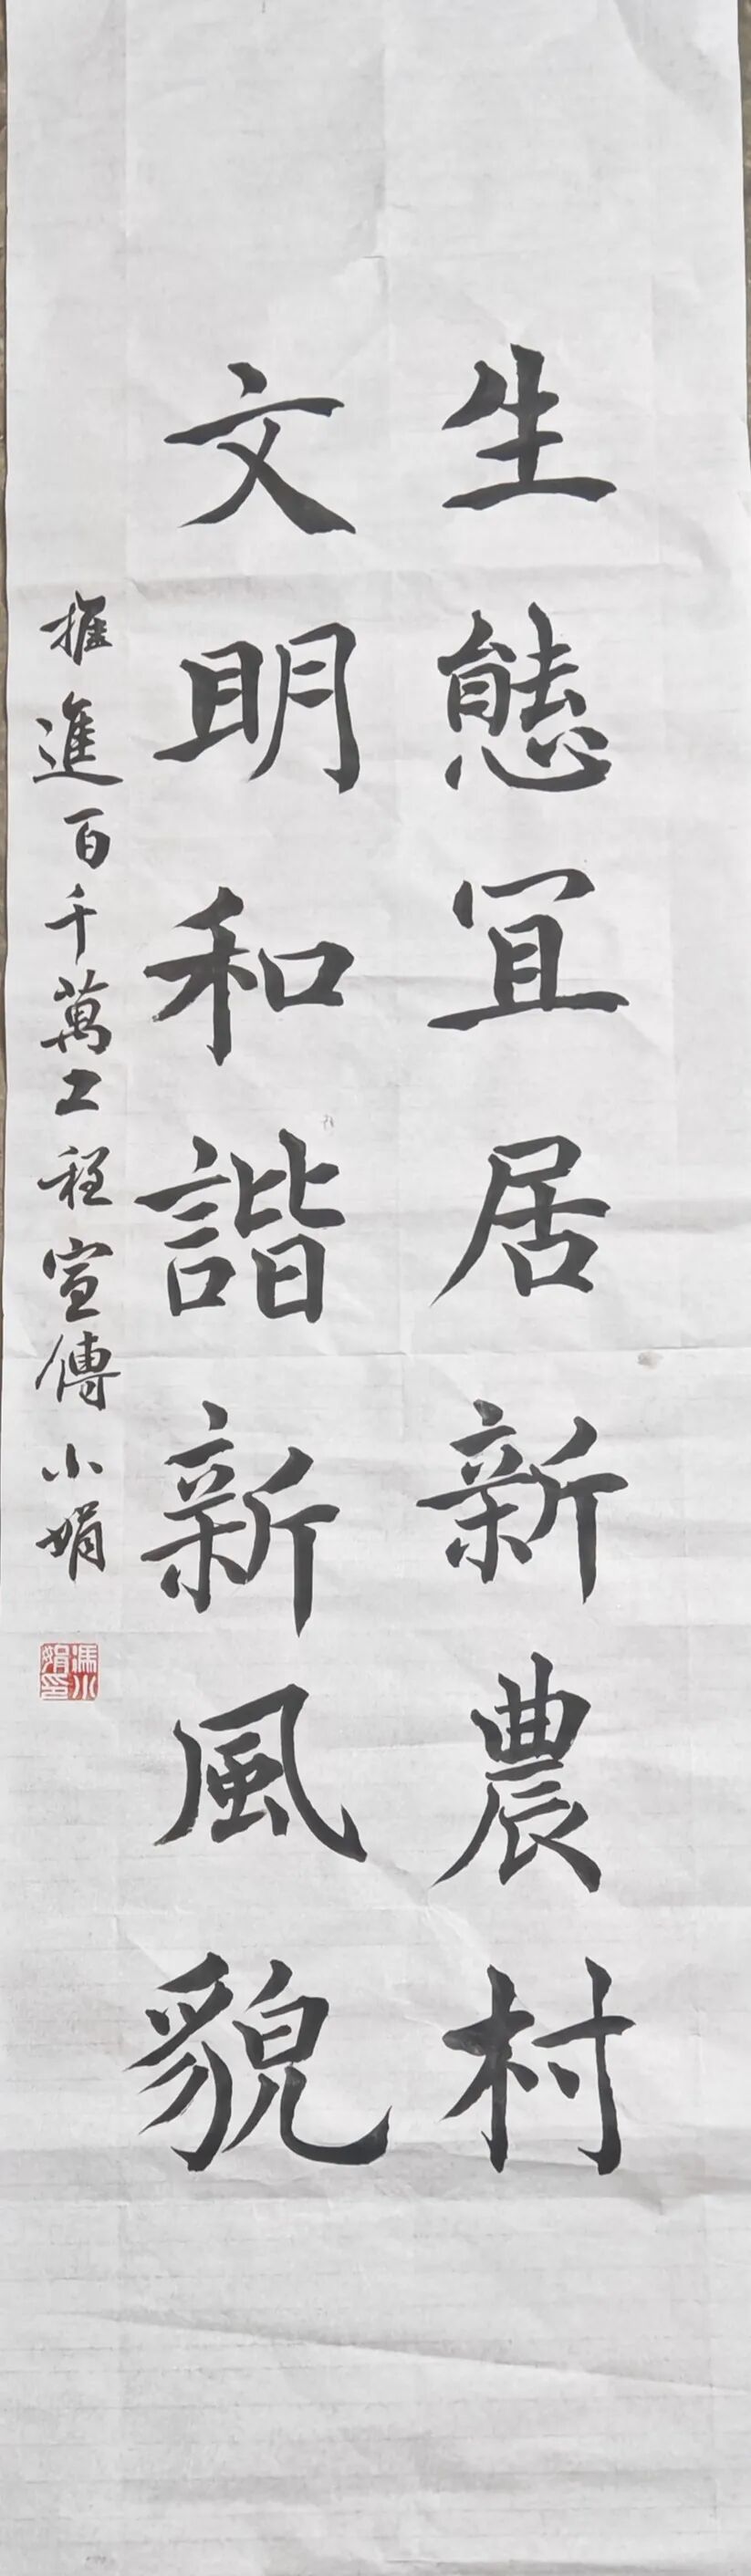 生態宜居新農村
文明和諧新風貌
推進百千萬工程宣傳 小娟
馮小娟印